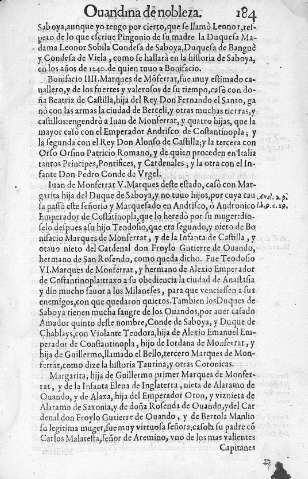 Ouandina de nobleza. 184
Saboya, aunque yo tengo por cierto, que se llamò Leonor, res-
peto de lo que escriue Pingonio de su madre la Duquesa Ma-
dama Leonor Sobila Condesa de Saboya, Duquesa de Bangè
y Condesa de Viela, como se hallarà en la historia de Saboya,
en los años de 1240. de quien tuuo a Bonifacio.
Bonifacio IIII. Marques de Mõferrat, fue muy estimado ca-
uallero, y de los fuertes y valerosos de su tiempo, casò con do-
ña Beatriz de Castilla, hija del Rey Don Fernando el Santo, ga-
nò con las armas la ciudad de Berceli, y otras muchas tierras, y
castillos: engendrò a Iuan de Monferrat, y quatro hijas, que la
mayor casò con el Emperador Andrisco de Costantinopla; y
la segunda con el Rey Don Alonso de Castilla; y la tercera con
Orso Orsino Patricio Romano, y de quien proceden en Italia
tantos Principes, Pontifices, y Cardenales; y la otra con el In-
fante Don Pedro Conde de Vrgel.
Iuan de Monferrat V. Marques deste estado, casò con Mar-
garita hija del Duque de Saboya, y no tuuo hijos, por cuya cau
sa passò este señorio y Marquesado en Andrisco, o Andronico
Emperador de Costãtinopla, que lo heredò por su muger: dio-
selo despues a su hijo Teodosio, que era segundo, nieto de Bo
nifacio Marques de Monferrat, y de la Infanta de Castilla, y
otauo nieto del Cardenal don Froylo Gutierre de Ouando,
hermano de San Rosendo, como queda dicho. Fue Teodosio
VI. Marques de Monferrat, y hermano de Alexio Emperador
de Costantinopla: traxo a su obediencia la ciudad de Anastasia
y dio mucho fauor a los Milaneses, para que venciessen a sus
enemigos, con que quedaron quietos. Tambien los Duques de
Saboya tienen mucha sangre de los Ouandos, por auer casado
Amador quinto deste nombre, Conde de Saboya, y Duque de
Chablays, con Violante Teodora, hija de Alexio Emanuel Em-
perador de Constantinopla, hijo de Iordana de Monferrat, y
hija de Guillermo, llamado el Bello, tercero Marques de Mon-
ferrat, como dize la historia Taurina, y otras Coronicas.
Margarita, hija de Guillermo primer Marques de Monfer-
rat, y de la Infanta Elena de Inglaterra, nieta de Alaramo de
Ouando, y de Alaxa, hija del Emperador Oton, y viznieta de
Alaramo de Saxonia, y de doña Rosenda de Ouando, y del Car-
denal don Froylo Gutierre de Ouando, y de Bertola Manlio
su legitima muger, fue muy virtuosa señora, casòla su padre cõ
Carlos Malatesta, señor de Aremino, vno de los mas valientes
Capitanes